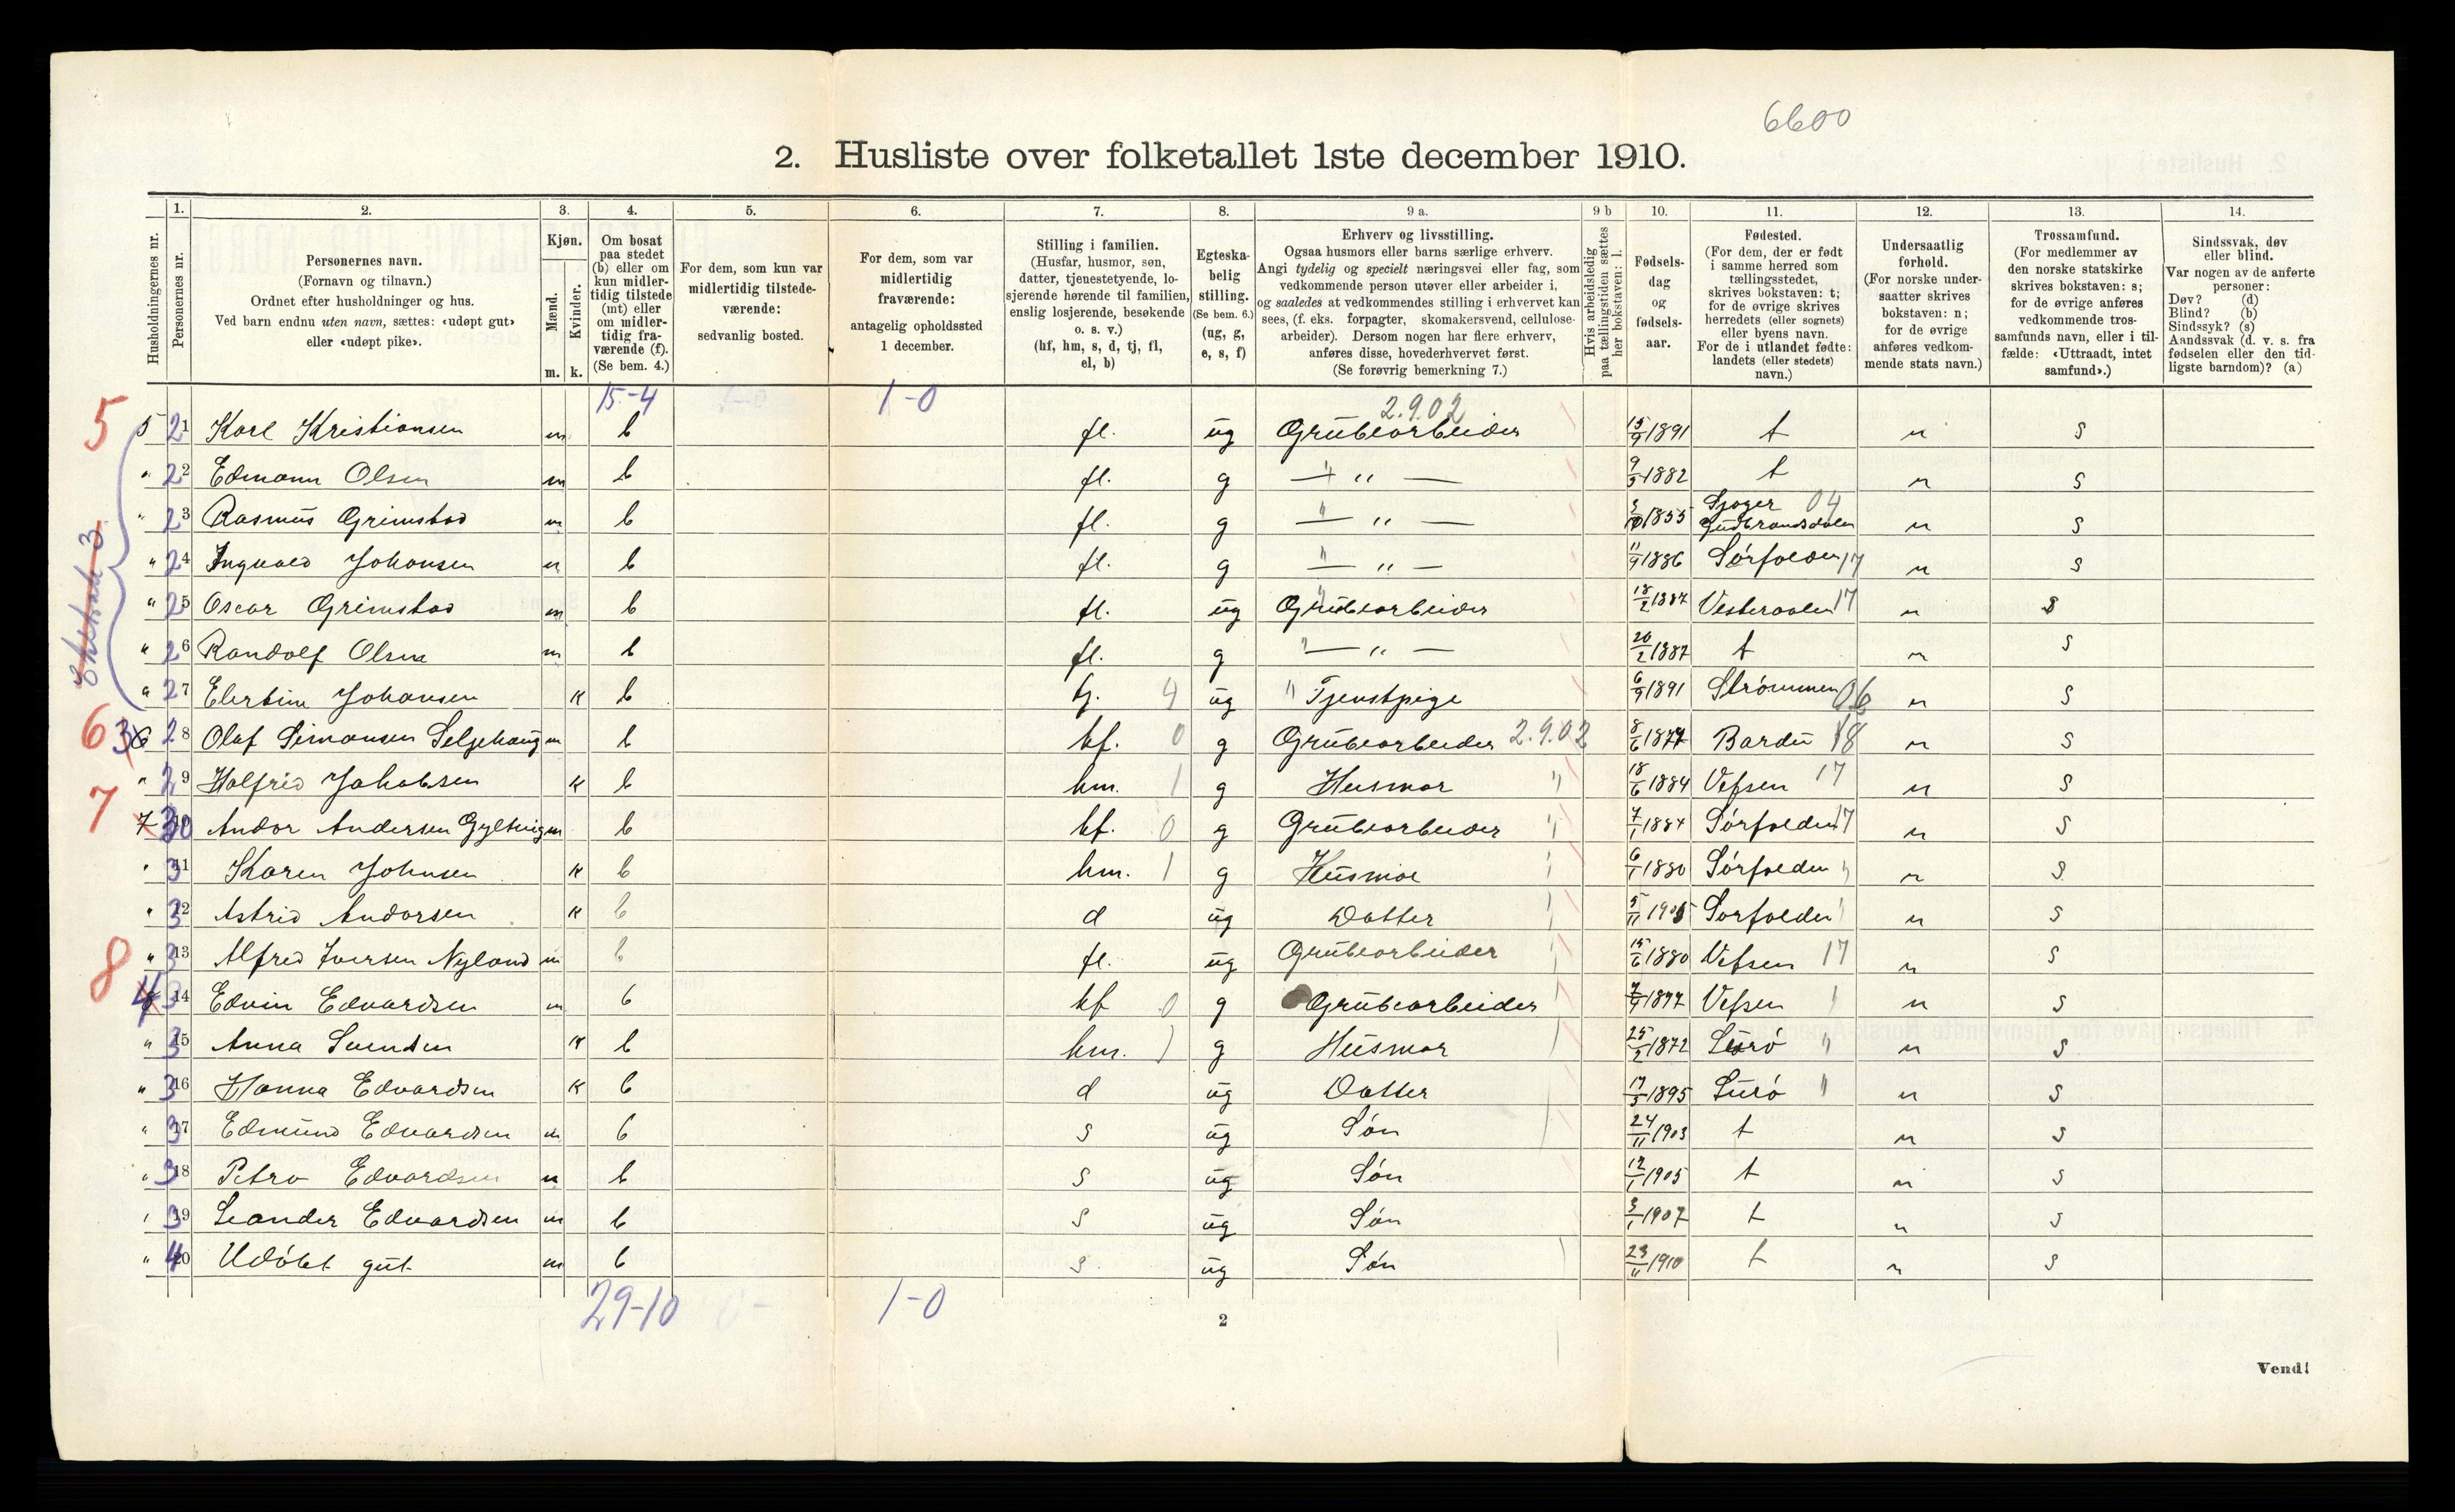 6600
2. Husliste over folketallet 1ste december 1910.
Husholdningernes nr.
1. Personernes nr.
2. Personernes navn. (Fornavn og tilnavn.) Ordnet efter husholdninger og hus. Ved barn endnu uten navn, sættes: «udøpt gut» eller «udøpt pike».
3. Kjøn. Mænd. m. Kvinder. k.
4. Om bosat paa stedet (b) eller om kun midlertidig tilstede (mt) eller om midlertidig fraværende (f). (Se bem. 4.)
5. For dem, som kun var midlertidig tilstedeværende: sedvanlig bosted.
6. For dem, som var midlertidig fraværende: antagelig opholdssted 1 december.
7. Stilling i familien. (Husfar, husmor, søn, datter, tjenestetyende, losjerende hørende til familien, enslig losjerende, besøkende o. s. v.) (hf, hm, s, d, tj, fl, el, b)
8. Egteskabelig stilling. (Se bem. 6.) (ug, g, e, s, f)
9 a. Erhverv og livsstilling. Ogsaa husmors eller barns særlige erhverv. Angi tydelig og specielt næringsvei eller fag, som vedkommende person utøver eller arbeider i, og saaledes at vedkommendes stilling i erhvervet kan sees, (f. eks. forpagter, skomakersvend, cellulosearbeider). Dersom nogen har flere erhverv, anføres disse, hovederhvervet først. (Se forøvrig bemerkning 7.)
9 b Hvis arbeidsledig paa tællingstiden sættes her bokstaven: l.
10. Fødselsdag og fødselsaar.
11. Fødested. (For dem, der er født i samme herred som tællingsstedet, skrives bokstaven: t; for de øvrige skrives herredets (eller sognets) eller byens navn. For de i utlandet fødte: landets (eller stedets) navn.)
12. Undersaatlig forhold. (For norske undersaatter skrives bokstaven: n; for de øvrige anføres vedkommende stats navn.)
13. Trossamfund. (For medlemmer av den norske statskirke skrives bokstaven: s; for de øvrige anføres vedkommende trossamfunds navn, eller i tilfælde: «Uttraadt, intet samfund».)
14. Sindssvak, døv eller blind. Var nogen av de anførte personer: Døv? (d) Blind? (b) Sindssyk? (s) Aandssvak (d. v. s. fra fødselen eller den tidligste barndom)? (a)
15-4 1-0 2.9.02
5 5 21 Karl Kristiansen m b fl. ug Grubearbeider 15/9 1891 t n s
" 22 Edmann Olsen m b fl. g — " — 9/3 1882 t n s
" 23 Rasmus Grimstad m b fl. g — " — 3/10 1855 Gudbrandsdalen 04 n s
" 24 Ingvald Johansen m b fl. g — " — 11/9 1886 Sørfolden 17 n s
" 25 Oscar Grimstad m b fl. ug Grubearbeider 18/2 1887 Vesteraalen 17 n s
" 26 Randolf Olsen m b fl. g — " — 20/2 1887 t n s
" 27 Elertine Johansen k b tj. 4 ug Tjenstpige 6/9 1891 Strømmen 06 n s
6 3 6 28 Olaf Simonsen Seljehaug m b hf. 0 g Grubearbeider 2.9.02 8/6 1877 Bardu 18 n s
" 29 Halfrid Jakobsen k b hm. 1 g Husmor " 18/6 1884 Vefsen 17 n s
7 7 30 Andor Andersen Gyltvig m b hf. 0 g Grubearbeider " 7/1 1884 Sørfolden 17 n s
" 31 Karen Johnsen k b hm. 1 g Husmor 6/1 1880 Sørfolden " n s
" 32 Astrid Andorsen k b d ug Datter 5/11 1905 Sørfolden n s
" 33 Alfred Iversen Nyland m b fl. ug Grubearbeider 15/6 1880 Vefsen 17 n s
8 4 34 Edvin Edvardsen m b hf 0 g Grubearbeider 7/9 1877 Vefsen n s
" 35 Anna Svendsen k b hm. 1 g Husmor 25/2 1872 Lurø " n s
" 36 Hanna Edvardsen k b d ug Datter 17/3 1895 Lurø " n s
" 37 Edmund Edvardsen m b s ug Søn 24/11 1903 t n s
" 38 Petro Edvardsen m b s ug Søn 12/1 1905 t n s
" 39 Leander Edvardsen m b s ug Søn 3/1 1907 t n s
" 40 Udøbt gut m b s ug Søn 23/11 1910 t n s
29-10 1-0
2
Vend!